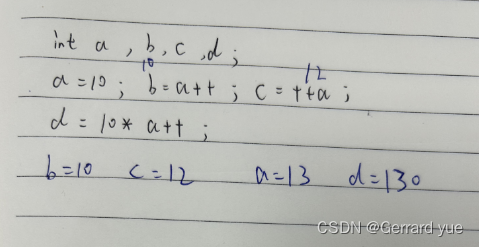 int a , b , c , d ;
10 12
a = 10 ; b = a++ ; c = ++a ;
d = 10 * a++ ;
b = 10 c = 12 a = 13 d = 130
CSDN @Gerrard yue